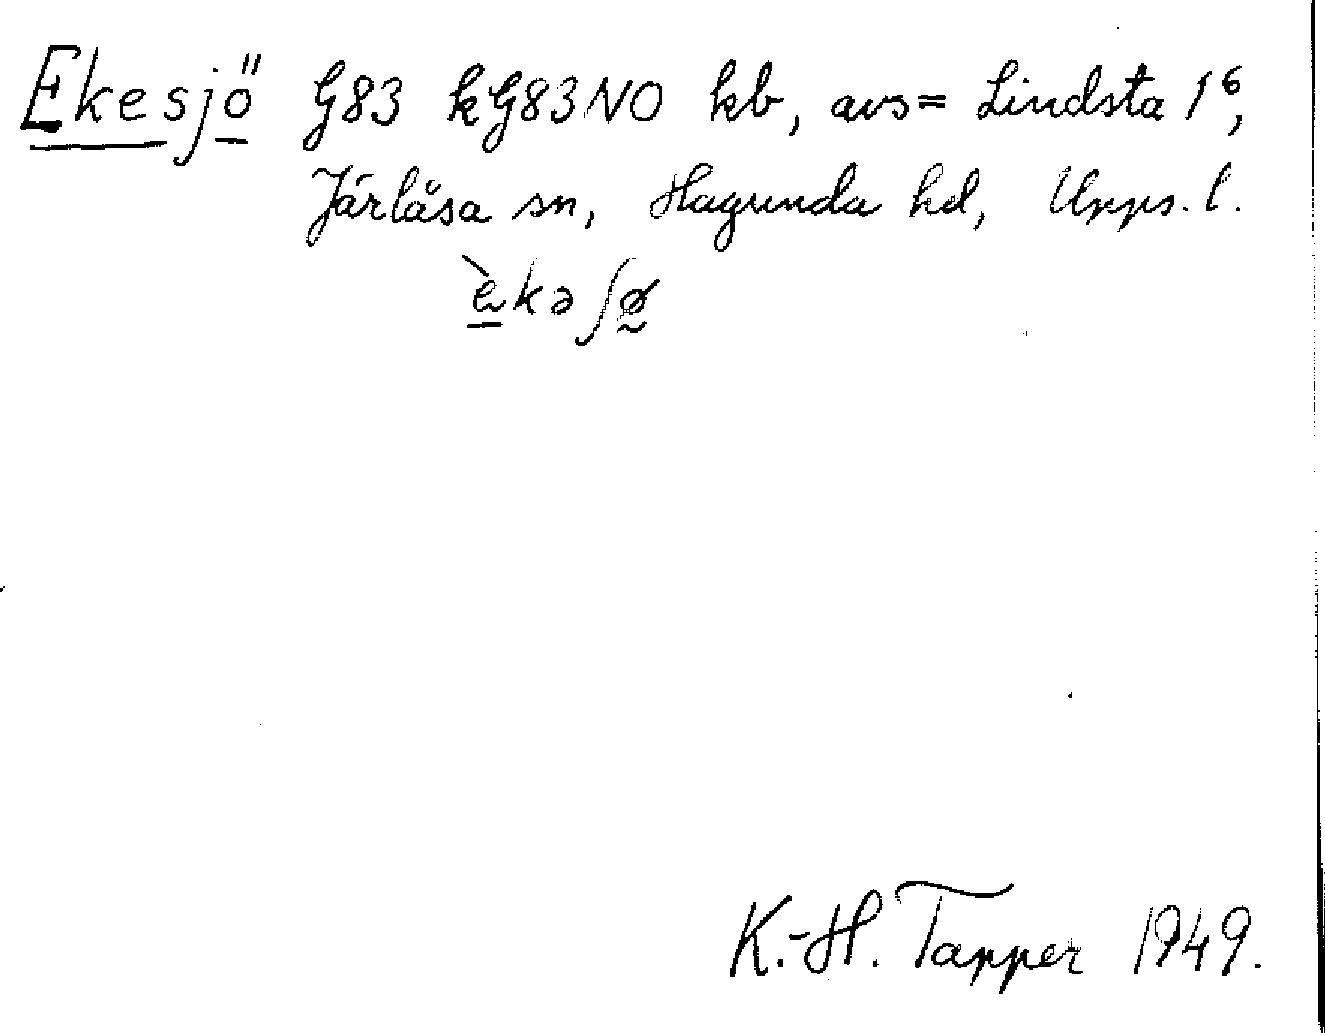 Ekesjö G83 kG83NO kb, avs= Lindsta 1⁶,
Järlåsa sn, Hagunda hd, Upps. l.
èkəʃø
K.-H. Tapper 1949.